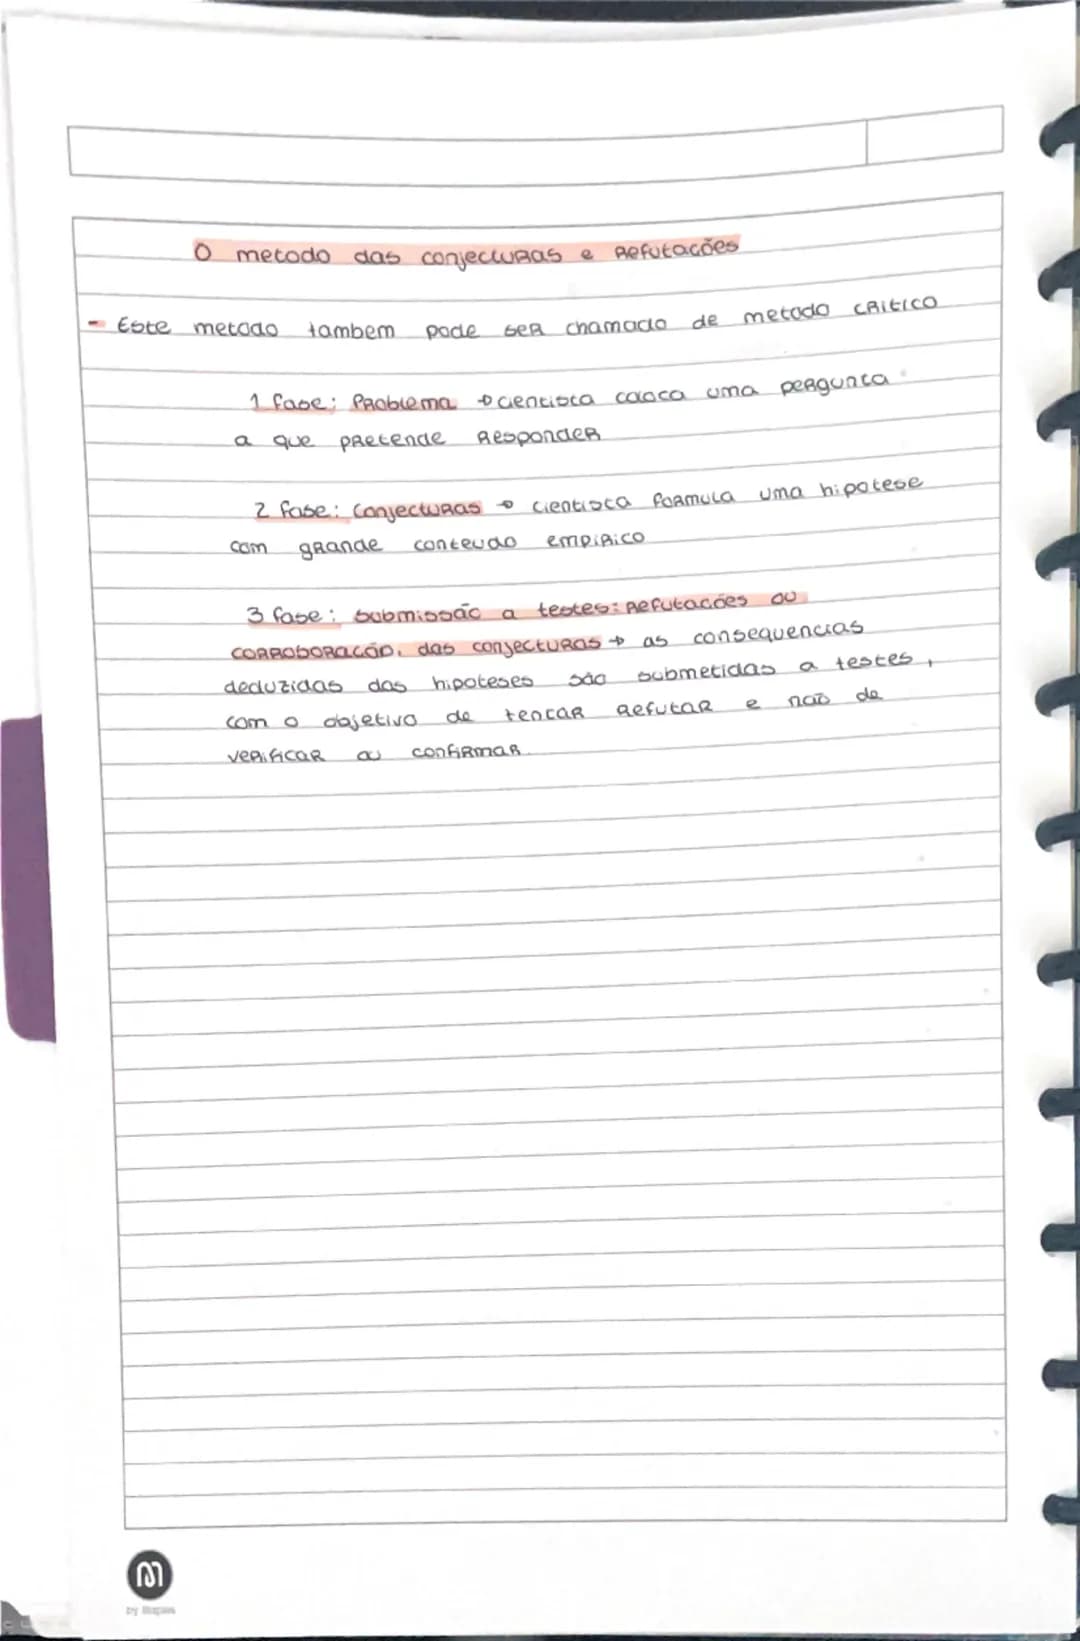 O metodo das conjecturas e Refutacões
- Este metodo tambem pode ser chamado de metodo critico
1 fase: Problema → cientista coloca uma pergunta
a que pretende Responder
2 fase: Conjecturas → cientista formula uma hipotese
com grande conteudo empirico
3 fase: submissão a testes: Refutacões ou
corroboracão. das conjecturas → as consequencias
deduzidas das hipoteses são submetidas a testes,
com o objetivo de tentar Refutar e não de
verificar ou confirmar.
by